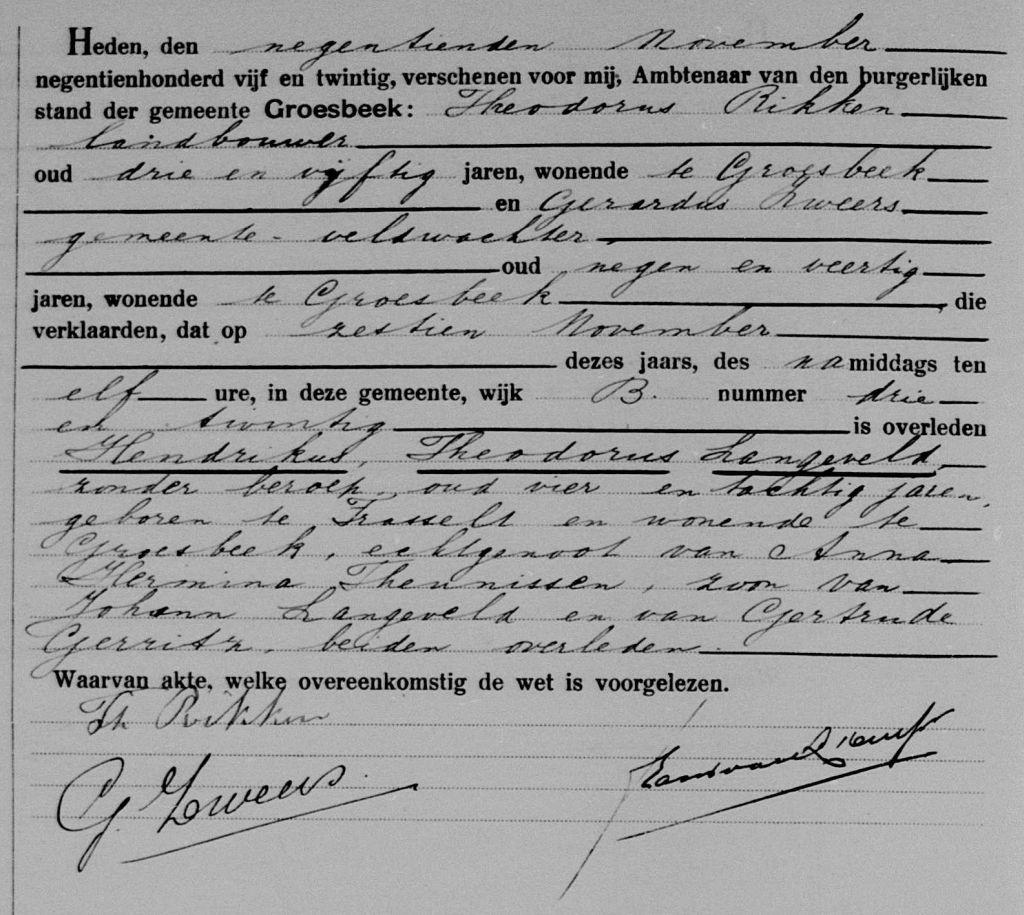 Heden, den negentienden November
negentienhonderd vijf en twintig, verschenen voor mij, Ambtenaar van den burgerlijken
stand der gemeente Groesbeek: Theodorus Rikken
landbouwer
oud drie en vijftig jaren, wonende te Groesbeek
en Gerardus Zweers
gemeente-veldwachter
oud negen en veertig
jaren, wonende te Groesbeek, die
verklaarden, dat op zestien November
dezes jaars, des namiddags ten
elf ure, in deze gemeente, wijk B. nummer drie
en twintig is overleden
Hendrikus, Theodorus Langeveld,
zonder beroep, oud vier en tachtig jaren,
geboren te Frasselt en wonende te
Groesbeek, echtgenoot van Anna
Hermina Theunissen, zoon van
Johann Langeveld en van Gertrude
Gerritz, beiden overleden.
Waarvan akte, welke overeenkomstig de wet is voorgelezen.
Th Rikken
G. Zweers.